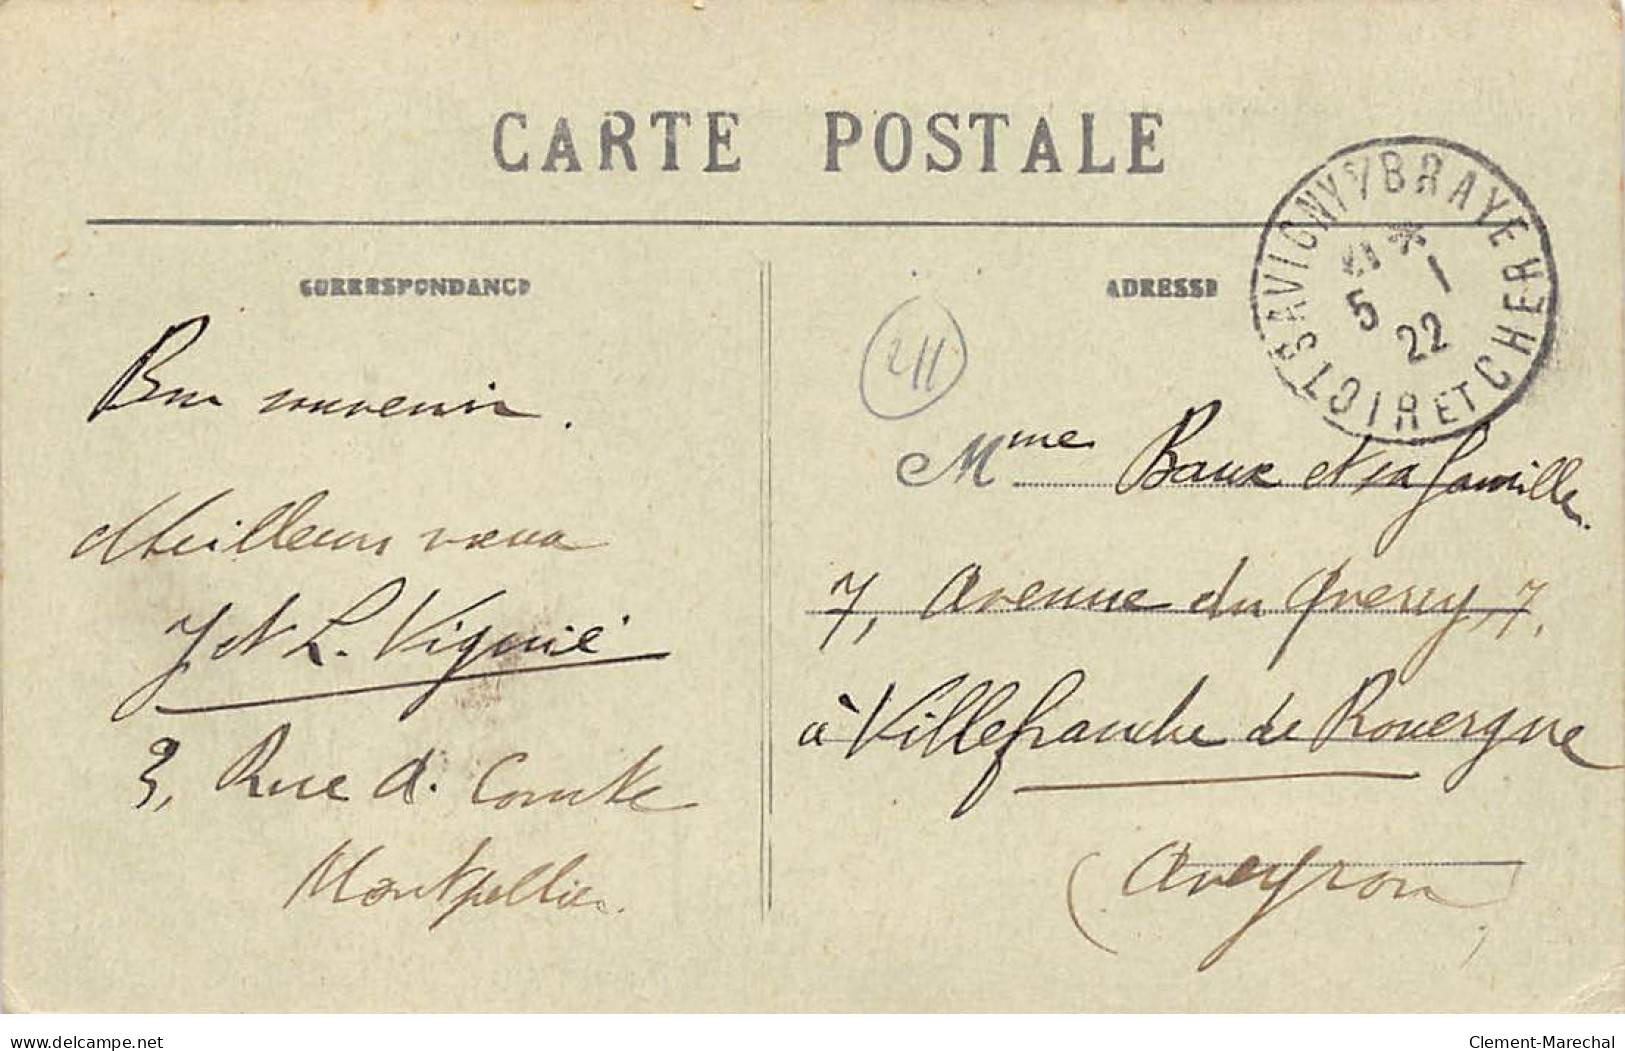 CARTE POSTALE
CORRESPONDANCE
Bon souvenir.
Meilleurs vœux
J et L. Vignié
3, Rue A. Comte
Montpellier.
ADRESSE
411
Mme Baux et sa famille
7, Avenue du Quercy, 7,
à Villefranche de Rouergue
(Aveyron)
SAVIGNY S/ BRAYE
LOIR ET CHER
5 - 1
22
www.delcampe.net
Clement-Marechal